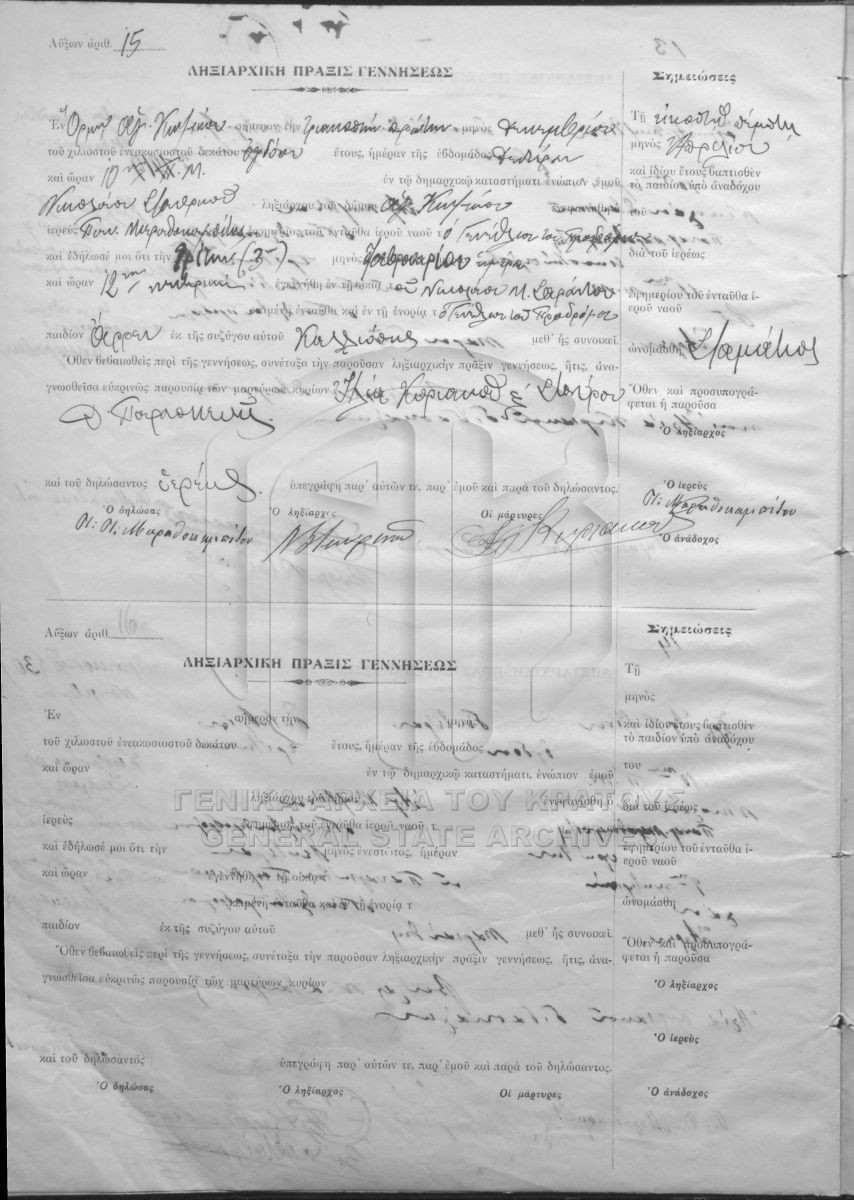 Αὔξων ἀριθ. 15
ΛΗΞΙΑΡΧΙΚΗ ΠΡΑΞΙΣ ΓΕΝΝΗΣΕΩΣ
Ἐν Ὅρμῳ Ἁγ. Κηρύκου σήμερον τὴν τριακοστὴν πρώτην μηνὸς Δεκεμβρίου
τοῦ χιλιοστοῦ ἐνεακοσιοστοῦ δεκάτου ὀγδόου ἔτους, ἡμέραν τῆς ἑβδομάδος Δευτέραν
καὶ ὥραν 10ην Π.Μ. ἐν τῷ δημαρχικῷ καταστήματι ἐνώπιον ἐμοῦ
Νικολάου ληξιάρχου τοῦ δήμου Ἁγ. Κηρύκου ἐνεφανίσθη ὁ
ἱερεὺς Παν. Μαραθοκαμπίτης ἐφημέριος τοῦ ἐνταῦθα ἱεροῦ ναοῦ τ ὁ Γενέθλιον τοῦ Προδρόμου
καὶ ἐδήλωσέ μοι ὅτι τὴν τρίτην (3ην) μηνὸς Φεβρουαρίου ἡμέραν
καὶ ὥραν 12ην ἐγεννήθη ἐν τῇ οἰκίᾳ τ οῦ Νικολάου Μ.
κειμένῃ ἐνταῦθα καὶ ἐν τῇ ἐνορίᾳ τ ὸ Γενέθλιον τοῦ Προδρόμου
παιδίον ἄρρεν ἐκ τῆς συζύγου αὐτοῦ Καλλιόπης μεθ' ἧς συνοικεῖ.
Ὅθεν βεβαιωθεὶς περὶ τῆς γεννήσεως, συνέταξα τὴν παροῦσαν ληξιαρχικὴν πρᾶξιν γεννήσεως, ἥτις, ἀνα-
γνωσθεῖσα εὐκρινῶς παρουσίᾳ τῶν μαρτύρων κυρίων Ἠλία Κυριακοῦ & Σταύρου
Παρασκευῆ
καὶ τοῦ δηλώσαντος ἱερέως ὑπεγράφη παρ' αὐτῶν τε, παρ' ἐμοῦ καὶ παρὰ τοῦ δηλώσαντος.
Ὁ δηλώσας Ὁ ληξίαρχος Οἱ μάρτυρες
Π: Π: Μαραθοκαμπίτου
Κυριακοῦ
Σημειώσεις
Τῇ εἰκοστῇ πέμπτῃ
μηνὸς Ἀπριλίου
καὶ ἰδίου ἔτους βαπτισθὲν
τὸ παιδίον ὑπὸ ἀναδόχου
τοῦ
διὰ τοῦ ἱερέως
ἐφημερίου τοῦ ἐνταῦθα ἱ-
εροῦ ναοῦ
ὠνομάσθη Σταμάτιος
Ὅθεν καὶ προσυπογρά-
φεται ἡ παροῦσα
Ὁ ληξίαρχος
Ὁ ἱερεὺς
Π: Μαραθοκαμπίτου
Ὁ ἀνάδοχος
Αὔξων ἀριθ. 16
ΛΗΞΙΑΡΧΙΚΗ ΠΡΑΞΙΣ ΓΕΝΝΗΣΕΩΣ
Ἐν σήμερον τὴν
τοῦ χιλιοστοῦ ἐνεακοσιοστοῦ δεκάτου ἔτους, ἡμέραν τῆς ἑβδομάδος
καὶ ὥραν ἐν τῷ δημαρχικῷ καταστήματι, ἐνώπιον ἐμοῦ
ληξιάρχου τοῦ δήμου ἐνεφανίσθη ὁ
ΓΕΝΙΚΑ ΑΡΧΕΙΑ ΤΟΥ ΚΡΑΤΟΥΣ
GENERAL STATE ARCHIVES
ἱερεὺς ἐφημέριος τοῦ ἐνταῦθα ἱεροῦ ναοῦ τ
καὶ ἐδήλωσέ μοι ὅτι τὴν μηνὸς ἐνεστῶτος, ἡμέραν
καὶ ὥραν ἐγεννήθη ἐν τῇ οἰκίᾳ τ
κειμένῃ ἐνταῦθα καὶ ἐν τῇ ἐνορίᾳ τ
παιδίον ἐκ τῆς συζύγου αὐτοῦ μεθ' ἧς συνοικεῖ.
Ὅθεν βεβαιωθεὶς περὶ τῆς γεννήσεως, συνέταξα τὴν παροῦσαν ληξιαρχικὴν πρᾶξιν γεννήσεως, ἥτις, ἀνα-
γνωσθεῖσα εὐκρινῶς παρουσίᾳ τῶν μαρτύρων κυρίων
καὶ τοῦ δηλώσαντος ὑπεγράφη παρ' αὐτῶν τε, παρ' ἐμοῦ καὶ παρὰ τοῦ δηλώσαντος.
Ὁ δηλώσας Ὁ ληξίαρχος Οἱ μάρτυρες
Σημειώσεις
Τῇ
μηνὸς
καὶ ἰδίου ἔτους βαπτισθὲν
τὸ παιδίον ὑπὸ ἀναδόχου
τοῦ
διὰ τοῦ ἱερέως
ἐφημερίου τοῦ ἐνταῦθα ἱ-
εροῦ ναοῦ
ὠνομάσθη
Ὅθεν καὶ προσυπογρά-
φεται ἡ παροῦσα
Ὁ ληξίαρχος
Ὁ ἱερεὺς
Ὁ ἀνάδοχος